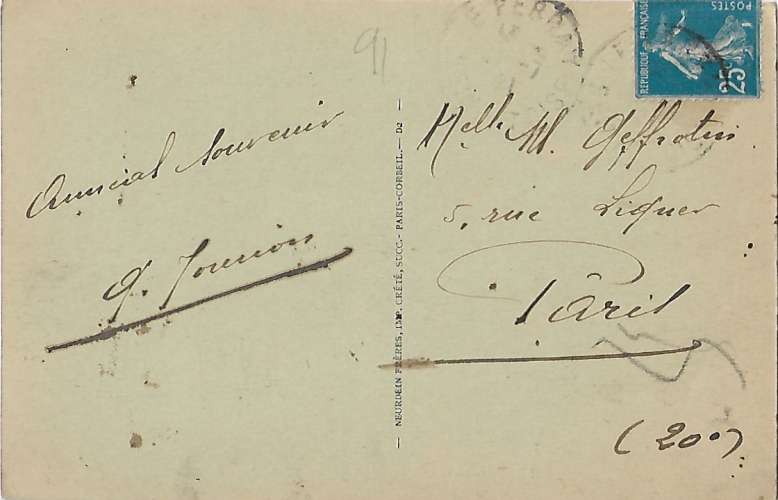 91
Amical Souvenir
NEURDEIN FRÈRES, IMP. CRÉTÉ, SUCC. - PARIS-CORBEIL. — D2
RÉPUBLIQUE FRANÇAISE
POSTES
25c
Melle M. Geffrotin
5, rue
Paris
(20e)